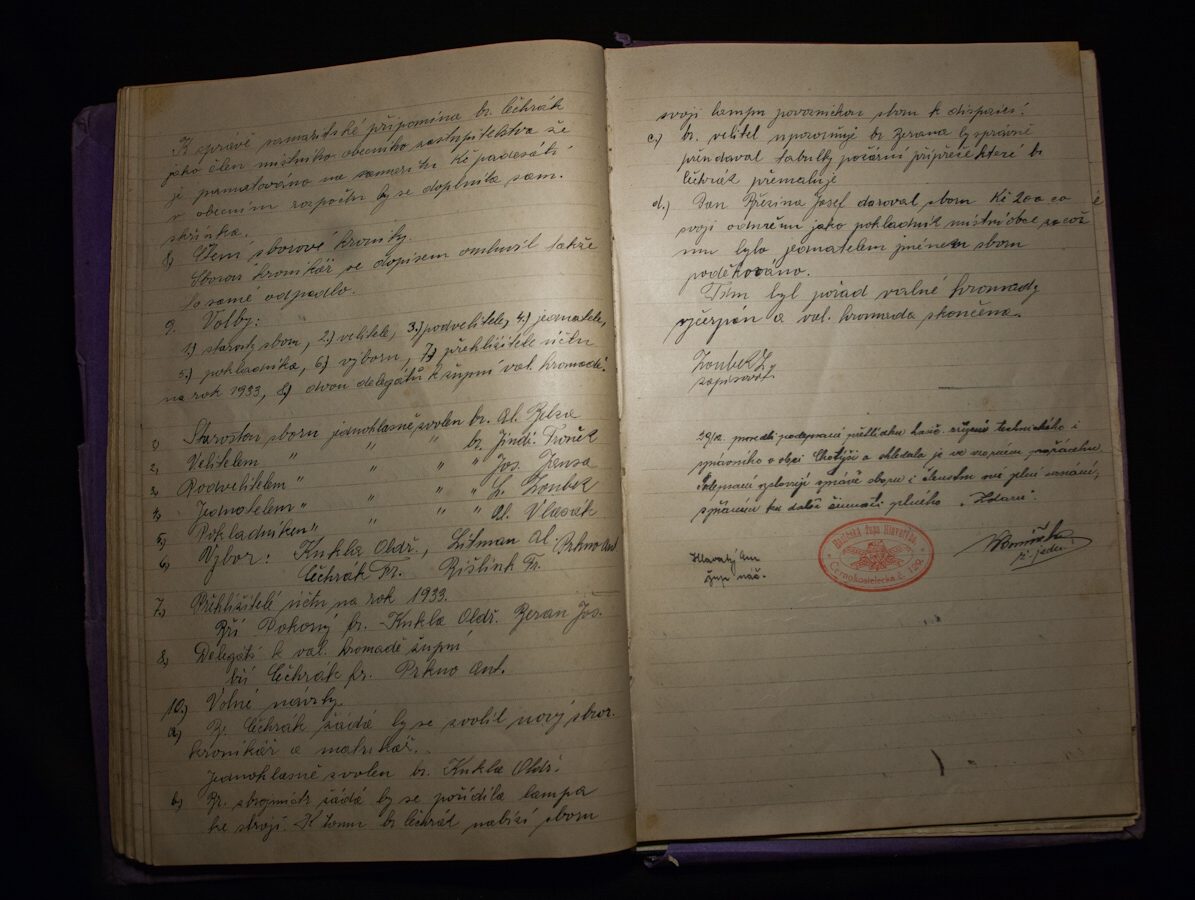 K zprávě samaritské připomíná br. Čihrák
jako člen místního obecního zastupitelstva že
je pamatováno na samaritu Kč padesáti
v obecním rozpočtu by se doplnila sam.
skřínka.
8) Čtení sborové kroniky.
Sborov kronikář se dopisem omluvil takže
to samé odpadlo.
9. Volby:
1.) starosty sboru, 2.) velitele, 3.) podvelitele, 4.) jednatele,
5.) pokladníka, 6.) výboru, 7.) přehlížitele účtu
na rok 1933, 8.) dvou delegátů k župní val. hromadě.
1) Starostou sboru jednohlasně zvolen br. Al. Belza
2, Velitelem " " " br. Jindř.
3, Podvelitelem " " " " Jos. Jansa
4, Jednatelem " " " " Zoubek
5, Pokladníkem " " " " Al. Vlasák
6, Výbor: Kukla Oldř., Litman Al. Prkno Ant
Čihrák Fr. Rislink Fr.
7.) Přehlížitelé účtu na rok 1933.
Bří Pokorný fr. - Kukla Oldř. Beran Jos.
8, Delegáti k val. hromadě župní
bří Čihrák fr. Prkno Ant.
10.) Volné návrhy.
a, Br. Čihrák žádá by se zvolil nový sbor.
kronikář a matrikář.
Jednohlasně zvolen br. Kukla Oldř.
b, Br. strojmistr žádá by se pořídila lampa
ke stroji. K tomu br Čihrák nabízí sboru
svoji lampu po sboru k disposici!
c.) br. velitel upozorňuje br Berana by správně
předával tabulky požární přípřeže které br
Čihrák přemaluje
d.) Pan Březina Josef daroval sboru Kč 200 co
svoji odměnu jako pokladník místní obce začož
mu bylo jednatelem jménem sboru
poděkováno.
Tím byl pořad valné hromady
vyčerpán a val. hromada skončena.
Zoubek
zapisovatel
provedli podepsaní přehlídku hasič. zřízení technického i
správního v obci Chotýši a shledala je ve vzorném pořádku.
Podepsaní vyslovují správě sboru i členstvu své plné uznání,
zdaru".
Hlavatý Ant
žup náč.
jedn.
Hasičská župa
Černokostelecká č.